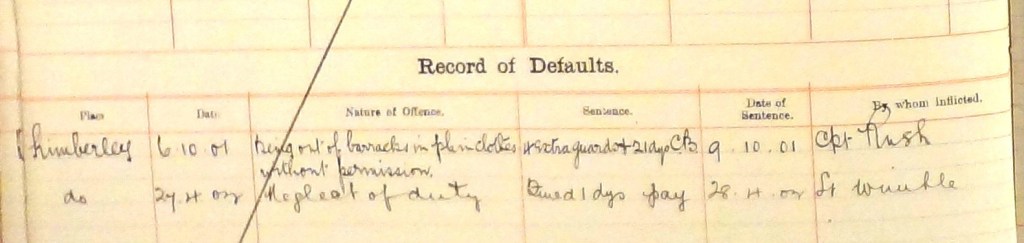 Record of Defaults.
Place Date Nature of Offence. Sentence. Date of Sentence. By whom inflicted.
Kimberley 6.10.01 Being out of barracks in plain clothes 4 extra guards & 21 dys CB 9.10.01 Cpt
without permission.
do 27.4.02 Neglect of duty Fined 1 dys pay 28.4.02 Lt